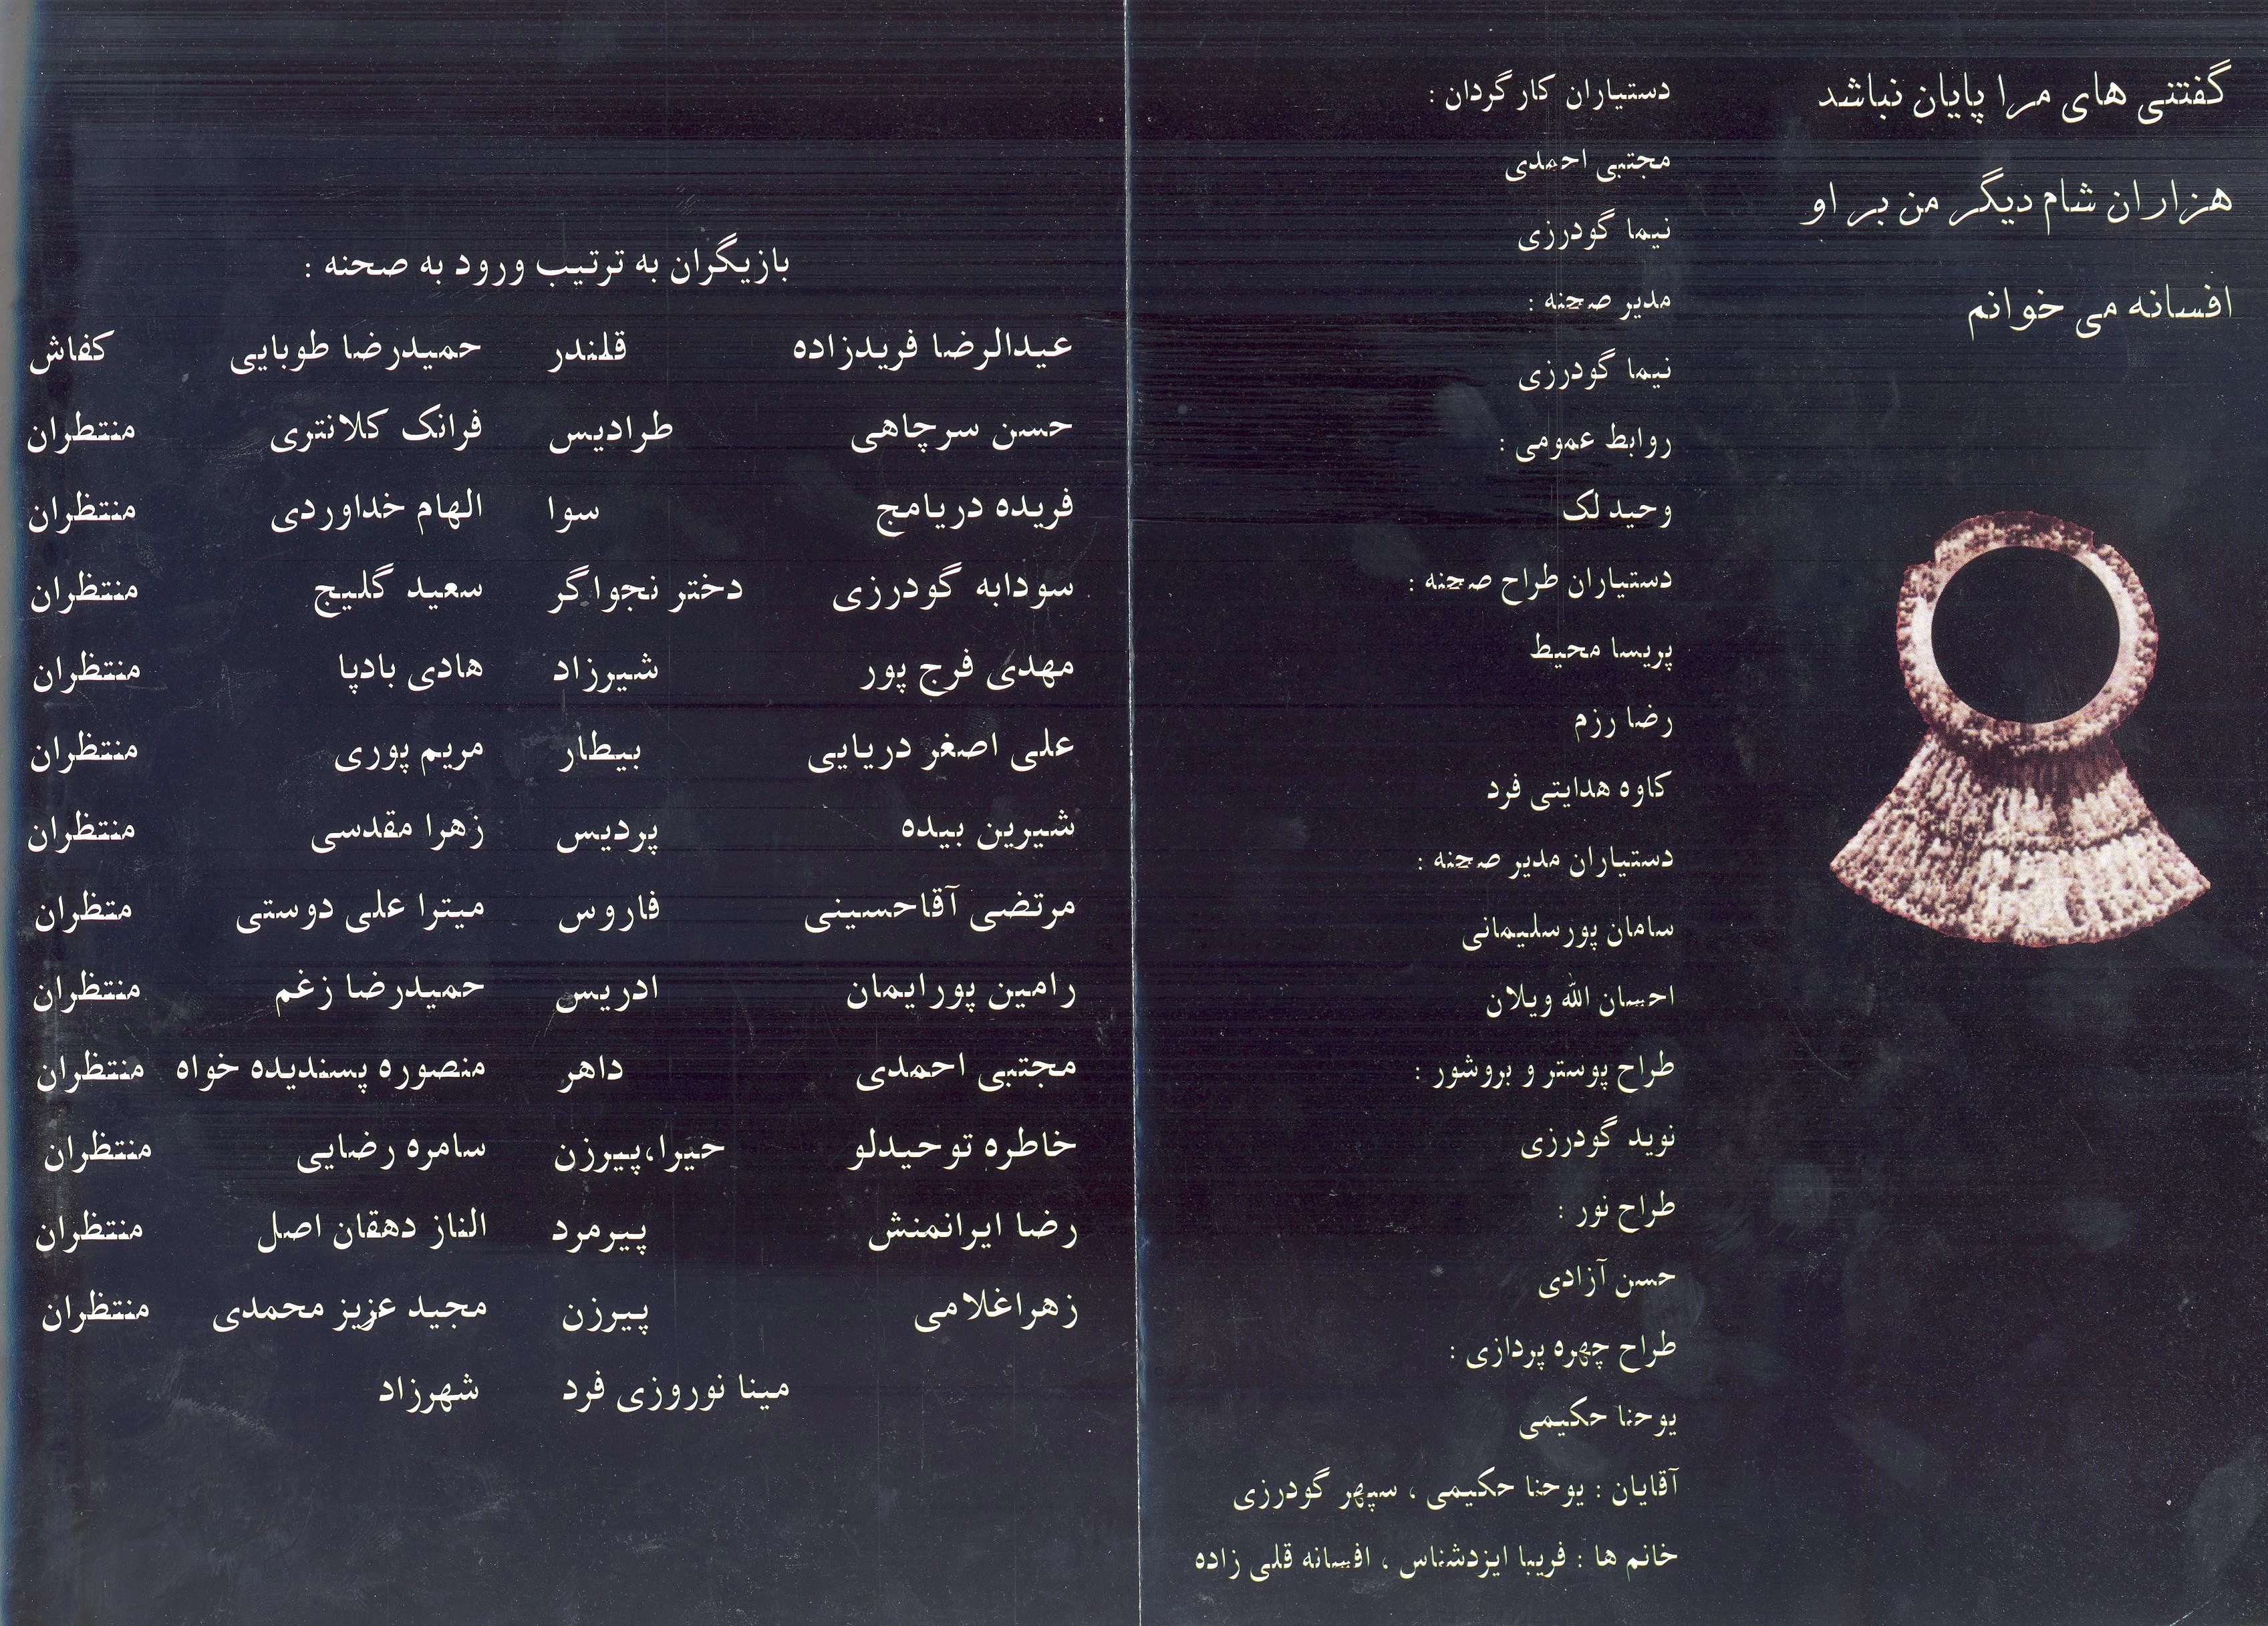 گفتنی های مرا پایان نباشد
هزاران شام دیگر من بر او
افسانه می خوانم
دستیاران کارگردان :
مجتبی احمدی
نیما گودرزی
مدیر صحنه :
نیما گودرزی
روابط عمومی :
وحید لک
دستیاران طراح صحنه :
پریسا محیط
رضا رزم
کاوه هدایتی فرد
دستیاران مدیر صحنه :
سامان پورسلیمانی
احسان الله ویلان
طراح پوستر و بروشور :
نوید گودرزی
طراح نور :
حسن آزادی
طراح چهره پردازی :
یوحنا حکیمی
آقایان : یوحنا حکیمی ، سپهر گودرزی
خانم ها : فریبا ایزدشناس ، افسانه قلی زاده
بازیگران به ترتیب ورود به صحنه :
عبدالرضا فریدزاده قلندر حمیدرضا طوبایی کفاش
حسن سرچاهی طرادیس فرانک کلانتری منتظران
فریده دریامج سوا الهام خداوردی منتظران
سودابه گودرزی دختر نجواگر سعید گلیج منتظران
مهدی فرج پور شیرزاد هادی بادپا منتظران
علی اصغر دریایی بیطار مریم پوری منتظران
شیرین بیده پردیس زهرا مقدسی منتظران
مرتضی آقاحسینی فاروس میترا علی دوستی متظران
رامین پورایمان ادریس حمیدرضا زغم منتظران
مجتبی احمدی داهر منصوره پسندیده خواه منتظران
خاطره توحیدلو حیرا،پیرزن سامره رضایی منتظران
رضا ایرانمنش پیرمرد الناز دهقان اصل منتظران
زهراغلامی پیرزن مجید عزیز محمدی منتظران
مینا نوروزی فرد شهرزاد